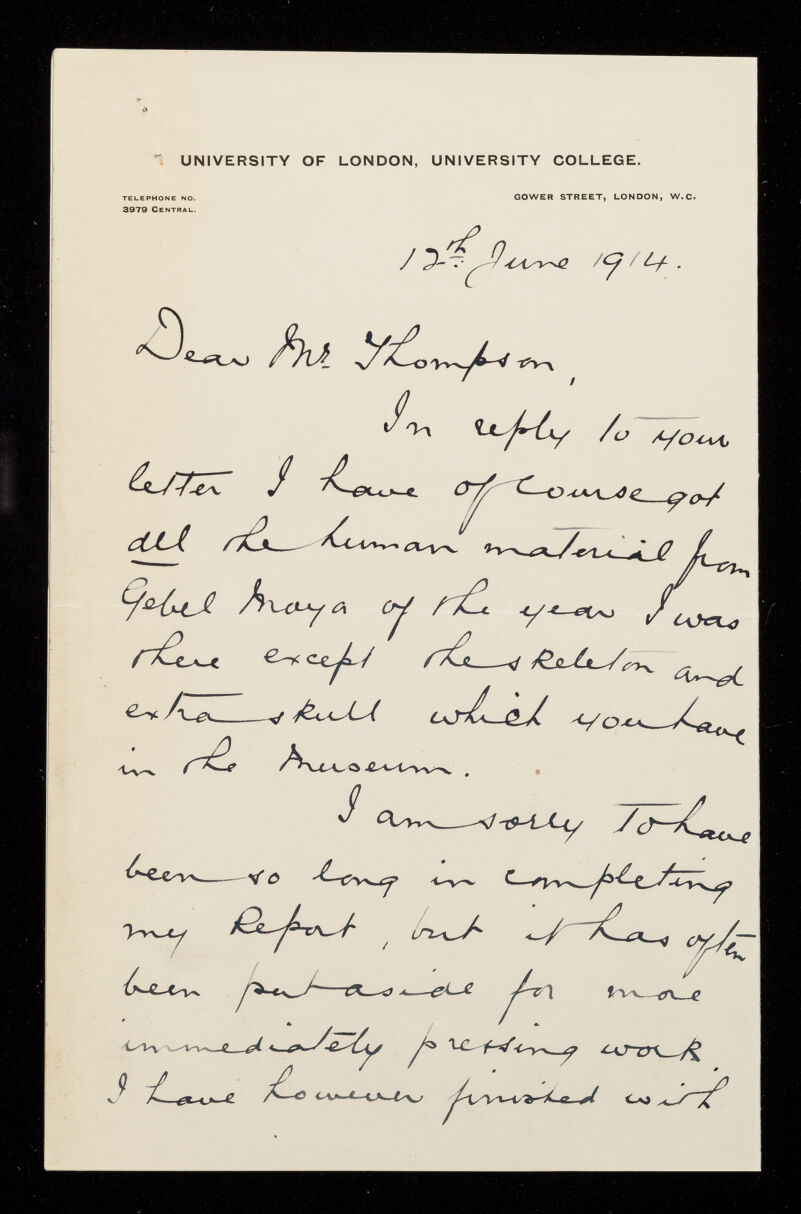 UNIVERSITY OF LONDON, UNIVERSITY COLLEGE.
TELEPHONE NO.
3979 CENTRAL.
GOWER STREET, LONDON, W.C.
12th June 1914.
Dear Mr. Thompson,
In reply to your
letter I have of course got
all the human material from
Gebel Moya of the year I was
there except the skeleton and
extra skull which you have
in the Museum.
I am sorry to have
been so long in completing
my Report, but it has often
been put aside for more
immediately pressing work.
I have however finished with